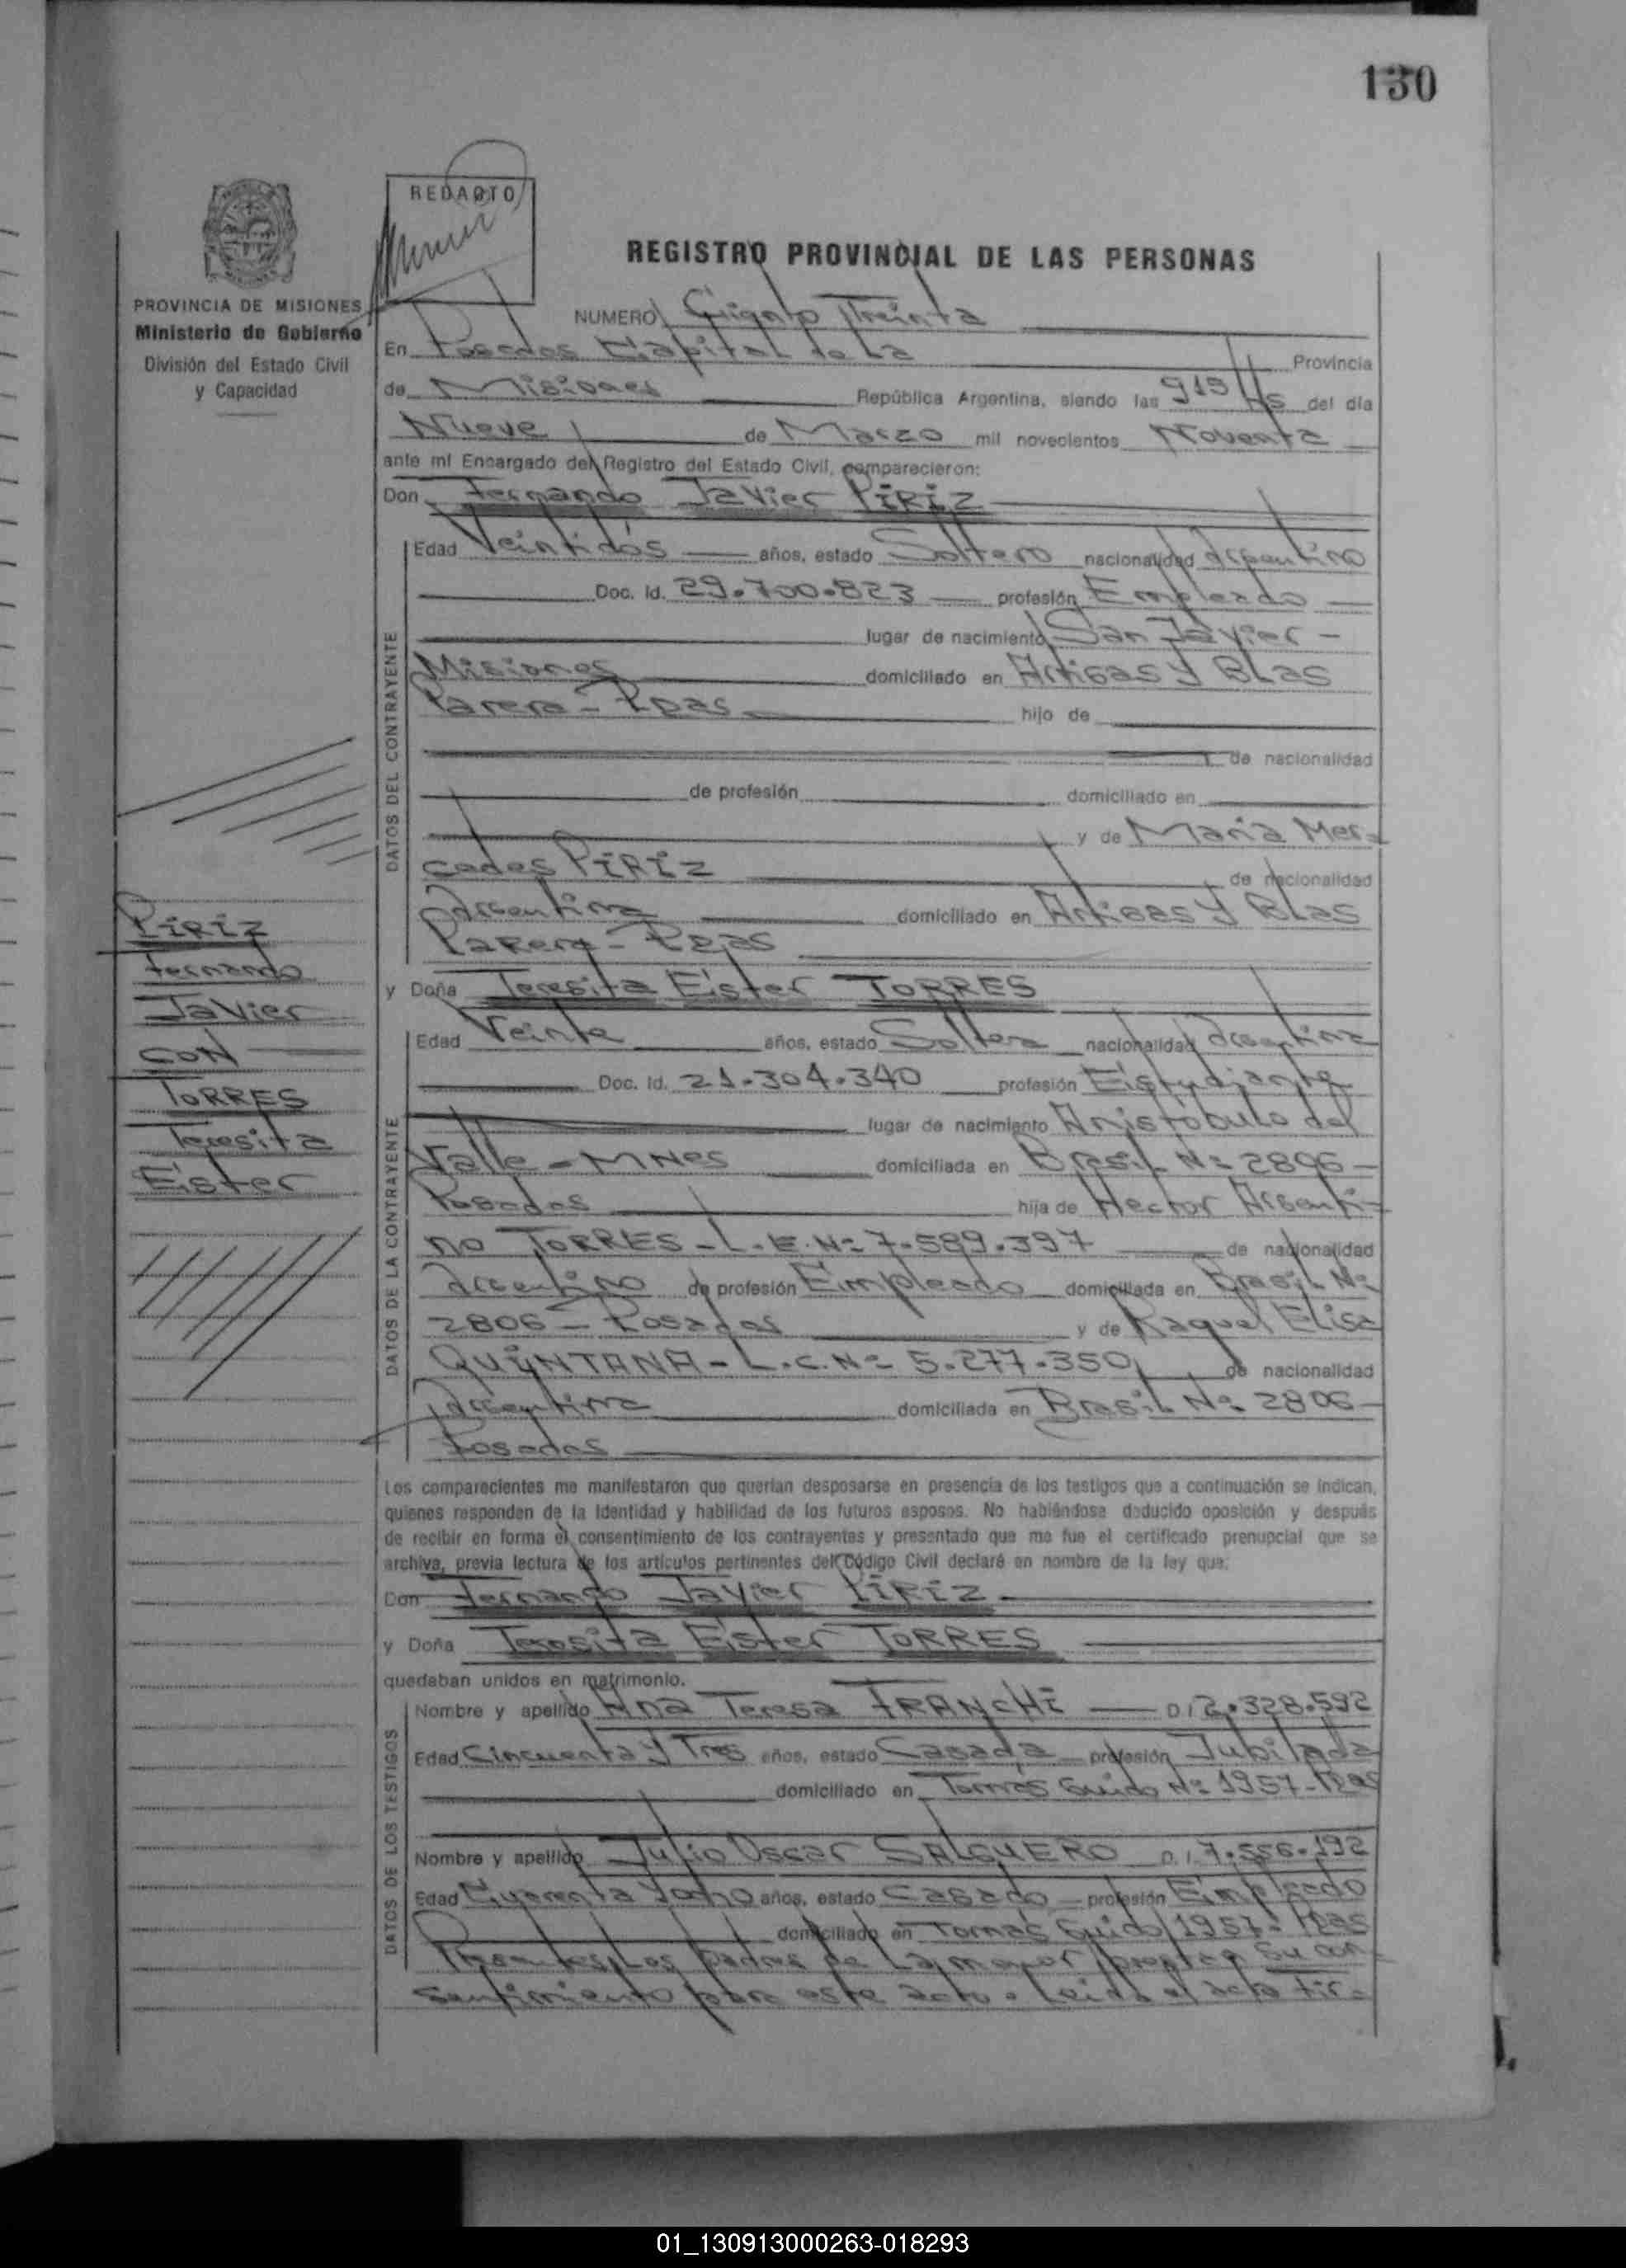 130
REDACTO
REGISTRO PROVINCIAL DE LAS PERSONAS
PROVINCIA DE MISIONES
Ministerio de Gobierno
División del Estado Civil
y Capacidad
NUMERO Ciento Treinta
En Posadas Capital de La Provincia
de Misiones República Argentina, siendo las 915 Hs del día
Nueve de Marzo mil novecientos Noventa
ante mi Encargado del Registro del Estado Civil, comparecieron:
Don Fernando Javier PIRIZ
DATOS DEL CONTRAYENTE
Edad Veintidós años, estado Soltero nacionalidad Argentino
Doc. Id. 29.700.823 profesión Empleado
lugar de nacimiento San Javier -
Misiones domiciliado en Artigas y Blas
Parera - Pdas hijo de
de nacionalidad
de profesión domiciliado en
y de Maria Mer-
cedes PIRIZ de nacionalidad
Argentina domiciliado en Artigas y Blas
Parera - Pdas
PIRIZ
Fernando
Javier
CON
TORRES
Teresita
Ester
y Doña Teresita Ester TORRES
DATOS DE LA CONTRAYENTE
Edad Veinte años, estado Soltera nacionalidad Argentina
Doc. Id. 21.304.340 profesión Estudiante
lugar de nacimiento Aristóbulo del
Valle - MNes domiciliada en Brasil Nº 2806 -
Posadas hija de Hector Argenti-
no TORRES - L.E. Nº 7.589.397 de nacionalidad
Argentino de profesión Empleado domiciliada en Brasil Nº
2806 - Posadas y de Raquel Elisa
QUINTANA - L.C. Nº 5.277.350 de nacionalidad
Argentina domiciliada en Brasil Nº 2806 -
Posadas
Los comparecientes me manifestaron que querían desposarse en presencia de los testigos que a continuación se indican,
quienes responden de la Identidad y habilidad de los futuros esposos. No habiéndose deducido oposición y después
de recibir en forma el consentimiento de los contrayentes y presentado que me fue el certificado prenupcial que se
archiva, previa lectura de los artículos pertinentes del Código Civil declaré en nombre de la ley que:
Don Fernando Javier PIRIZ
y Doña Teresita Ester TORRES
quedaban unidos en matrimonio.
DATOS DE LOS TESTIGOS
Nombre y apellido Ana Teresa FRANCHI D.I 2.328.592
Edad Cincuenta y Tres años, estado Casada profesión Jubilada
domiciliado en Tomás Guido Nº 1957 - Pdas
Nombre y apellido Julio Oscar SALGUERO D.I. 7.556.192
Edad Cuarenta y ocho años, estado Casado profesión Empleado
domiciliado en Tomás Guido 1957 - Pdas
Presentes Los padres de La menor prestan su con-
sentimiento para este acto. Leida el acta fir-
01_130913000263-018293